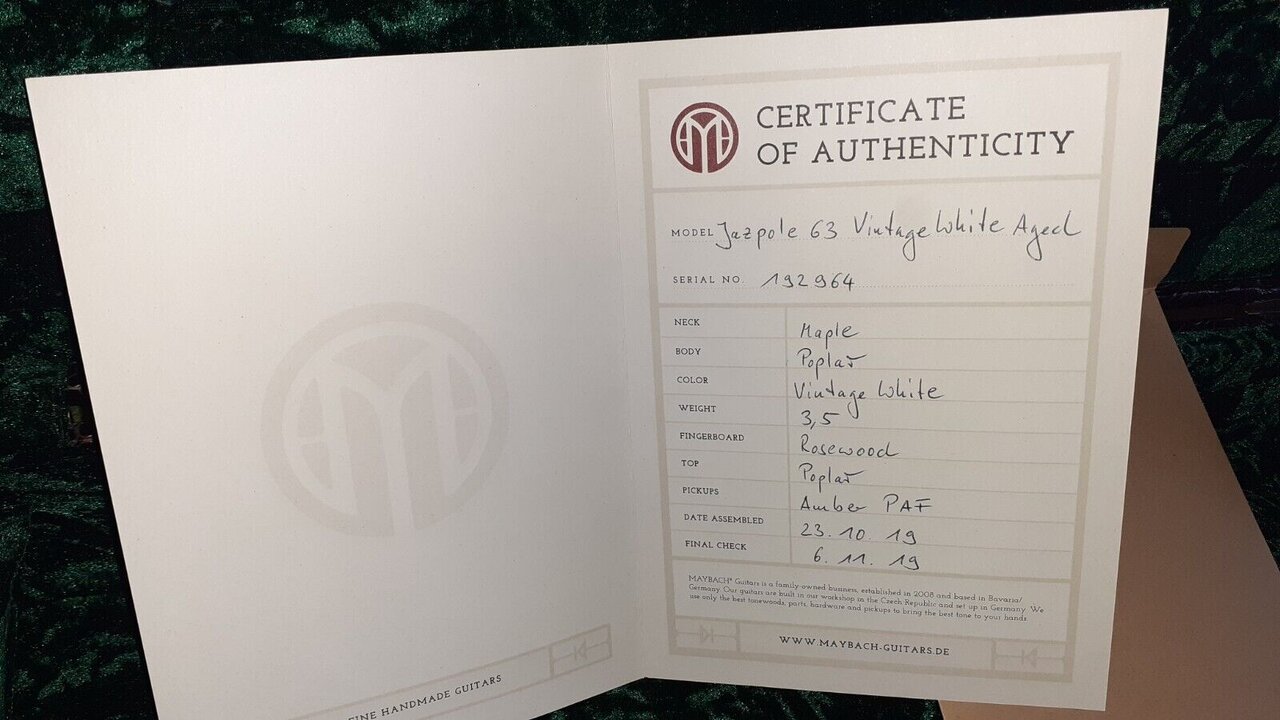 FINE HANDMADE GUITARS
CERTIFICATE
OF AUTHENTICITY
MODEL Jazpole 63 Vintage White Aged
SERIAL NO. 192964
NECK Maple
BODY Poplar
COLOR Vintage White
WEIGHT 3,5
FINGERBOARD Rosewood
TOP Poplar
PICKUPS Amber PAF
DATE ASSEMBLED 23. 10. 19
FINAL CHECK 6. 11. 19
MAYBACH® Guitars is a family-owned business, established in 2008 and based in Bavaria/
Germany. Our guitars are built in our workshop in the Czech Republic and set up in Germany. We
use only the best tonewoods, parts, hardware and pickups to bring the best tone to your hands.
WWW.MAYBACH-GUITARS.DE